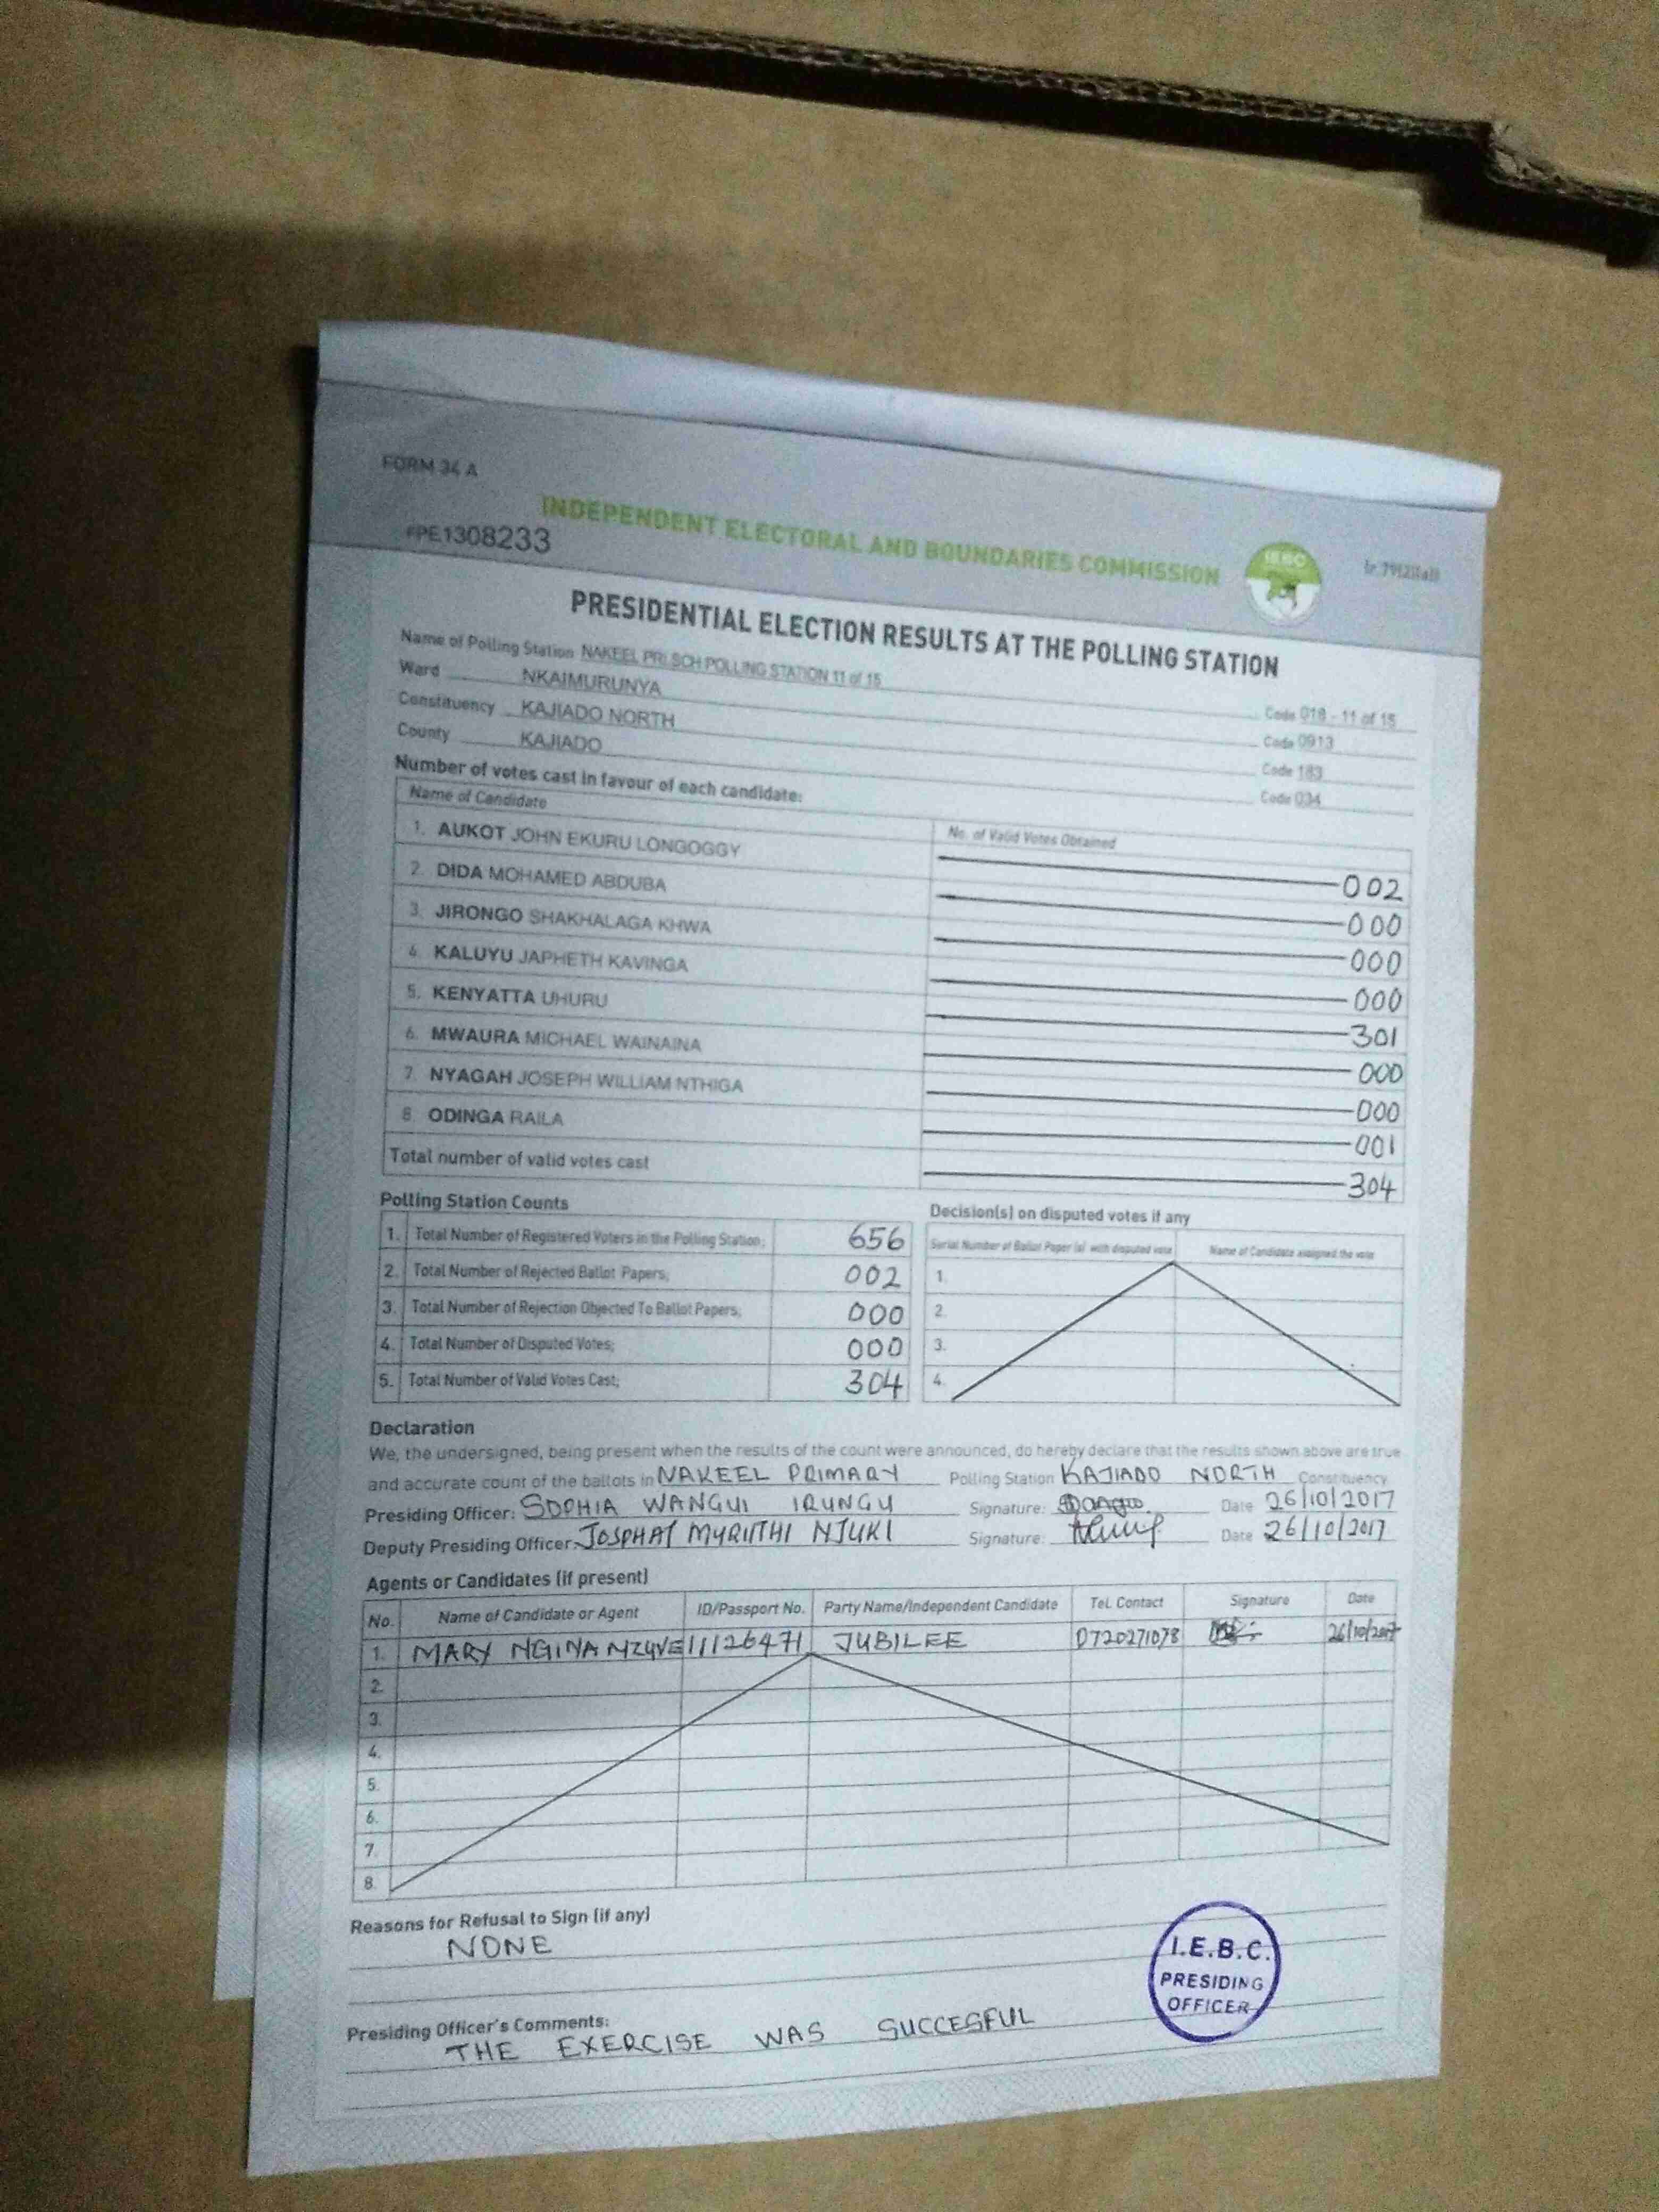 FORM 34 A
INDEPENDENT ELECTORAL AND BOUNDARIES COMMISSION
1308233
I.E.B.C
PRESIDENTIAL ELECTION RESULTS AT THE POLLING STATION
Name of Polling Station NAKEEL PRI SCH POLLING STATION 11 of 15 Code 018 - 11 of 15
Ward NKAIMURUNYA Code 0913
Constituency KAJIADO NORTH Code 183
County KAJIADO Code 034
Number of votes cast in favour of each candidate:
Name of Candidate No. of Valid Votes Obtained
1. AUKOT JOHN EKURU LONGOGGY 002
2. DIDA MOHAMED ABDUBA 000
3. JIRONGO SHAKHALAGA KHWA 000
4. KALUYU JAPHETH KAVINGA 000
5. KENYATTA UHURU 301
6. MWAURA MICHAEL WAINAINA 000
7. NYAGAH JOSEPH WILLIAM NTHIGA 000
8. ODINGA RAILA 001
Total number of valid votes cast 304
Polling Station Counts
1. Total Number of Registered Voters in the Polling Station; 656
2. Total Number of Rejected Ballot Papers; 002
3. Total Number of Rejection Objected To Ballot Papers; 000
4. Total Number of Disputed Votes; 000
5. Total Number of Valid Votes Cast; 304
Decision(s) on disputed votes if any
Serial Number of Ballot Paper (s) with disputed vote Name of Candidate assigned the vote
1.
2.
3.
4.
Declaration
We, the undersigned, being present when the results of the count were announced, do hereby declare that the results shown above are true
and accurate count of the ballots in NAKEEL PRIMARY Polling Station KAJIADO NORTH Constituency
Presiding Officer: SOPHIA WANGUI IRUNGU Signature: Date 26/10/2017
Deputy Presiding Officer: JOSPHAT MURIITHI NJUKI Signature: Date 26/10/2017
Agents or Candidates (if present)
No. Name of Candidate or Agent ID/Passport No. Party Name/Independent Candidate Tel. Contact Signature Date
1. MARY NGINA 11126471 JUBILEE 0720271078 26/10/2017
2.
3.
4.
5.
6.
7.
8.
Reasons for Refusal to Sign (if any)
NONE
I.E.B.C.
PRESIDING
OFFICER
Presiding Officer's Comments:
THE EXERCISE WAS SUCCESFUL